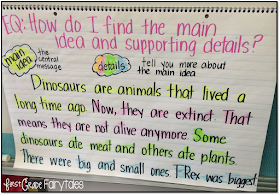 EQ: How do I find the main
idea and supporting details?
main idea the central message
details tell you more about the main idea
Dinosaurs are animals that lived a
long time ago. Now, they are extinct. That
means they are not alive anymore. Some
dinosaurs ate meat and others ate plants.
There were big and small ones. T-Rex was biggest!
First Grade Fairytales